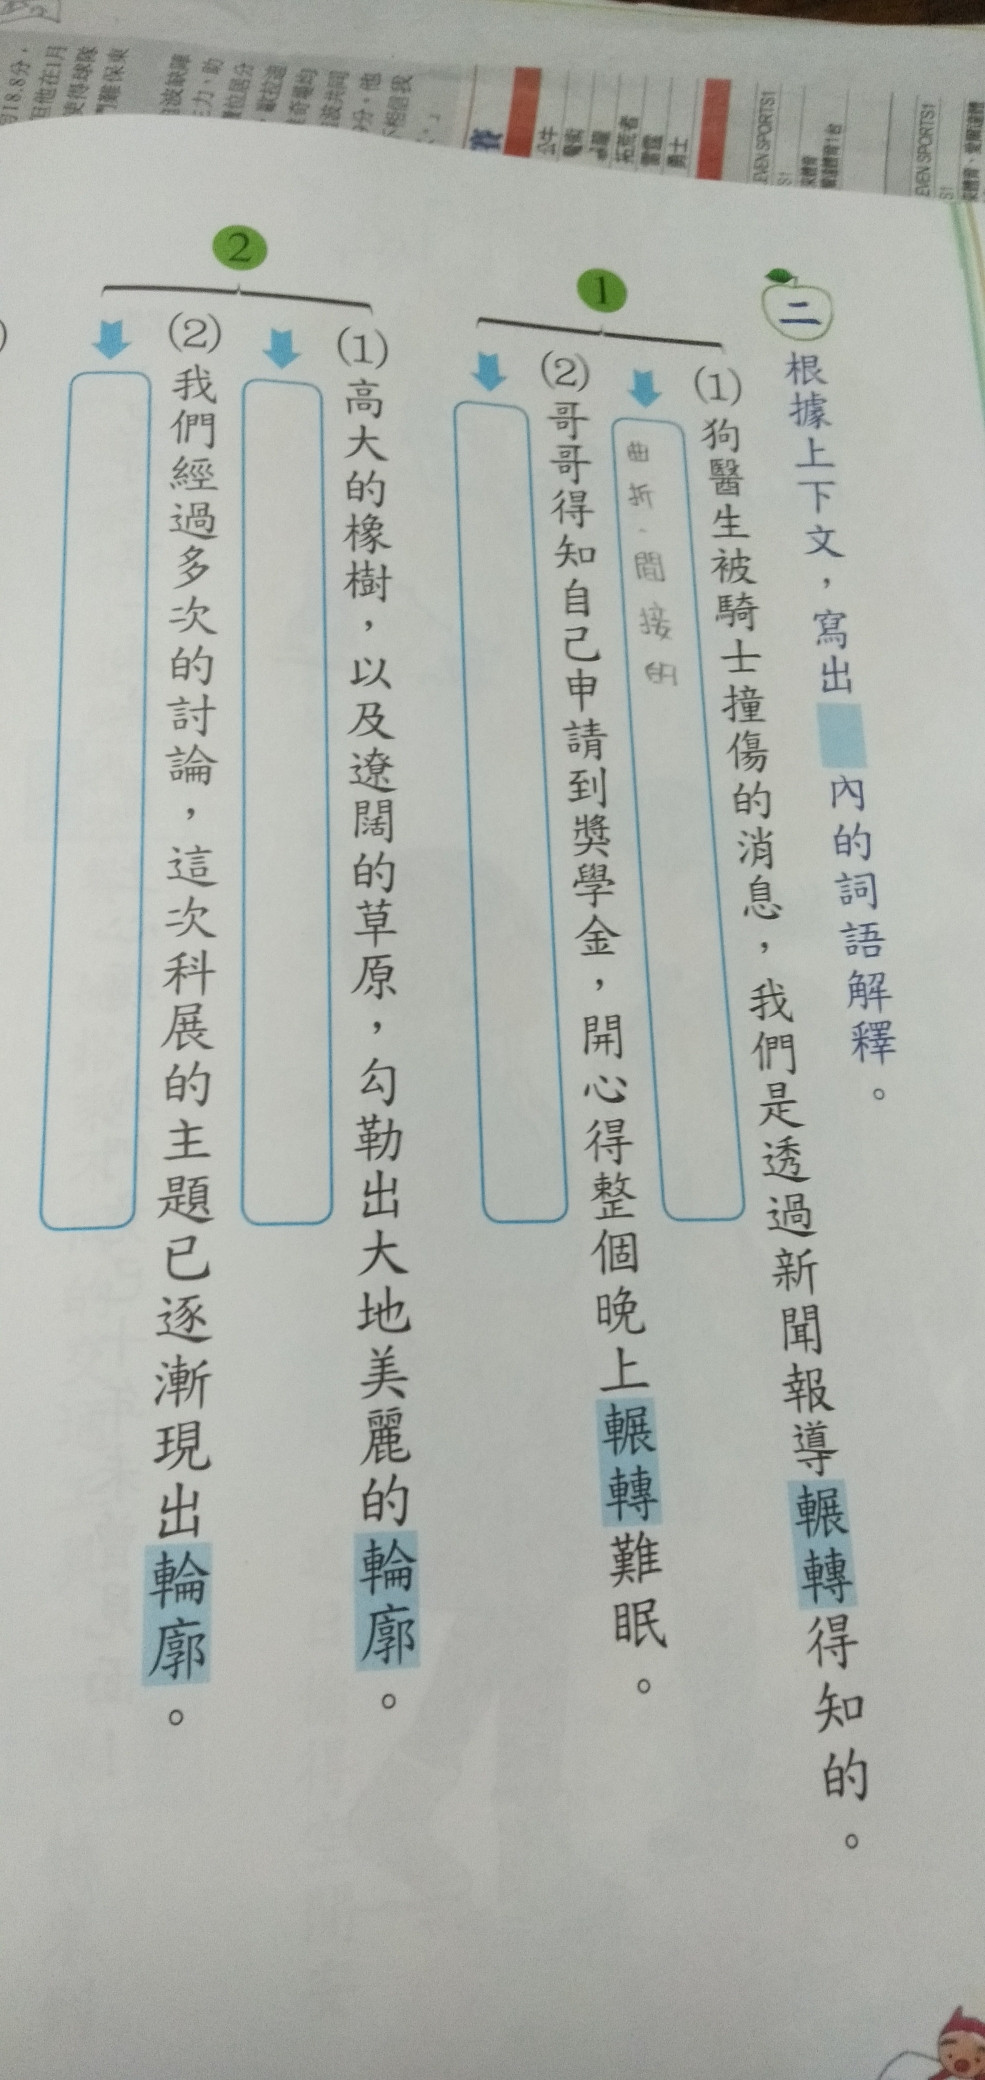 二
根據上下文，寫出 內的詞語解釋。
1
(1)狗醫生被騎士撞傷的消息，我們是透過新聞報導輾轉得知的。
曲折、間接的
(2)哥哥得知自己申請到獎學金，開心得整個晚上輾轉難眠。
2
(1)高大的橡樹，以及遼闊的草原，勾勒出大地美麗的輪廓。
(2)我們經過多次的討論，這次科展的主題已逐漸現出輪廓。
賽
公牛
魔術
拓荒者
雷霆
勇士
EVEN SPORTS1
S1
EVEN SPORTS1
S1